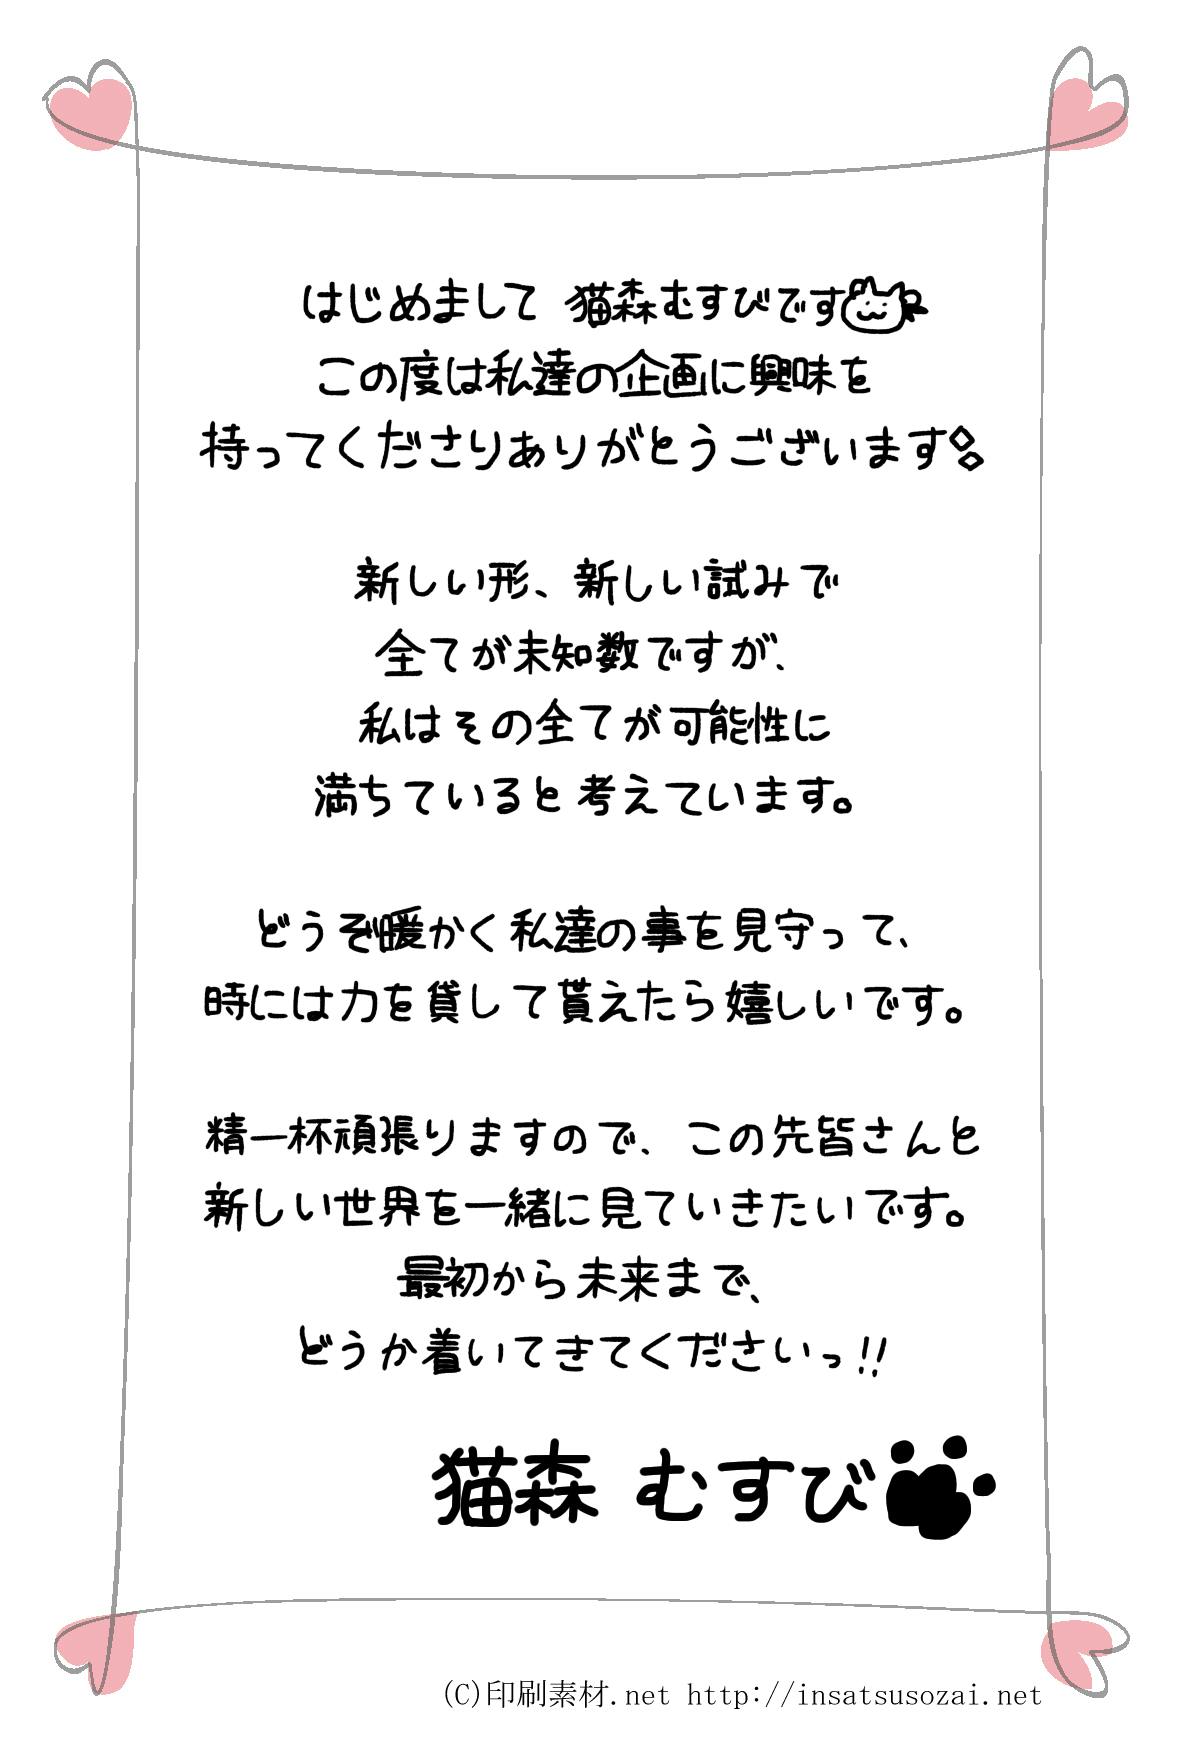 はじめまして 猫森むすびです
この度は私達の企画に興味を
持ってくださりありがとうございます
新しい形、新しい試みで
全てが未知数ですが、
私はその全てが可能性に
満ちていると考えています。
どうぞ暖かく私達の事を見守って、
時には力を貸して貰えたら嬉しいです。
精一杯頑張りますので、この先皆さんと
新しい世界を一緒に見ていきたいです。
最初から未来まで、
どうか着いてきてくださいっ!!
猫森 むすび
(C)印刷素材.net http://insatsusozai.net